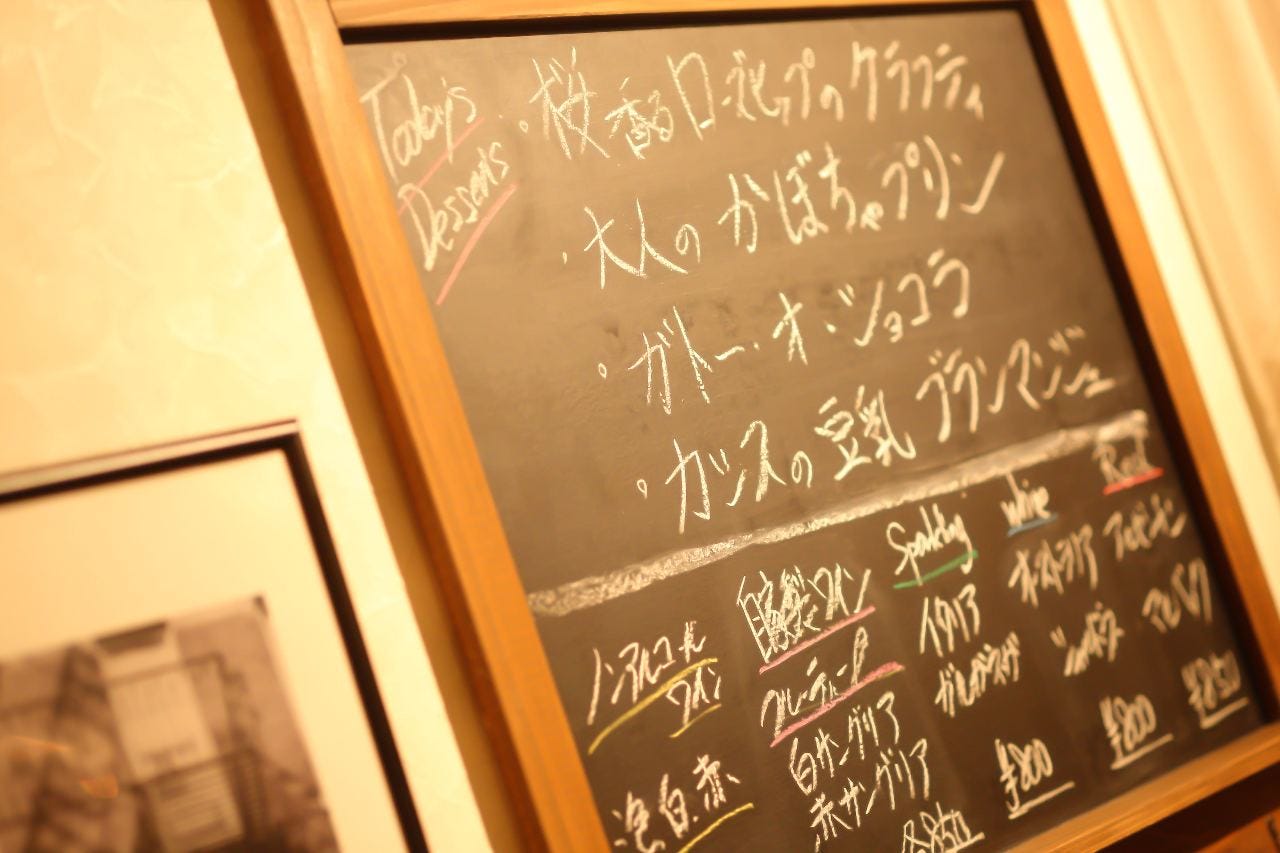 Today's
Desserts
・桜香るローズヒップのクラフティ
・大人のかぼちゃプリン
・ガトー・オ・ショコラ
・カシスの豆乳ブランマンジェ
ノンアルコール
ワイン
泡白赤
自家製ワイン
フルーティー
白サングリア
赤サングリア
各850
Sparkling
イタリア
¥800
White
オーストラリア
¥800
Red
¥850